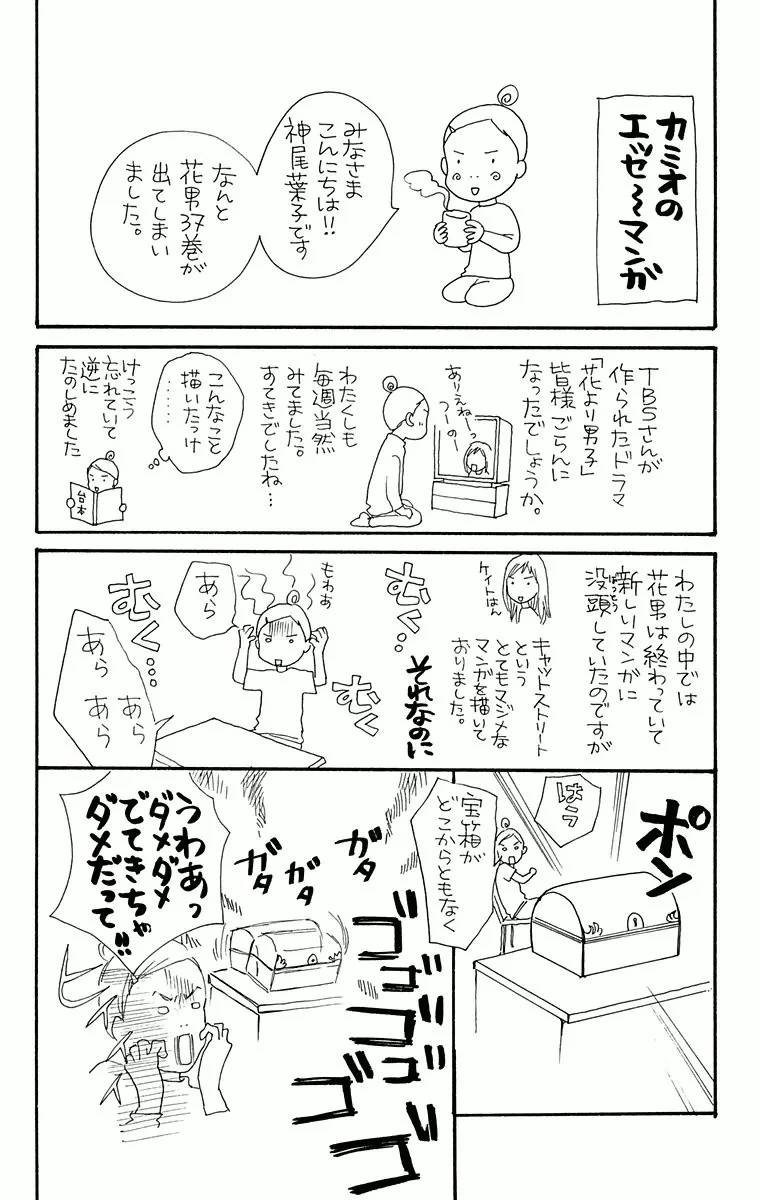 カミオの
エッセ〜マンガ
みなさま
こんにちは!!
神尾葉子です
なんと
花男37巻が
出てしまい
ました。
TBSさんが
作られたドラマ
「花より男子」
皆様ごらんに
なったでしょうか。
ありえねーっ
つーの
わたくしも
毎週当然
みてました。
すてきでしたね…
こんなこと
描いたっけ
……
けっこう
忘れていて
逆に
たのしめました
台本
わたしの中では
花男は終わっていて
新しいマンガに
没頭していたのですが
ぼっとう
ケイトはん
キャットストリート
という
とてもマジメな
マンガを描いて
おりました。
それなのに
もわあ
むく…
むく…
むく
あら
あら
あら
あら
ポン
はうっ
宝箱が
どこからともなく
ガタ
ガタ
ガタ
ゴゴゴゴゴゴ
うわあっ
ダメダメ
でてきちゃ
ダメだって!!